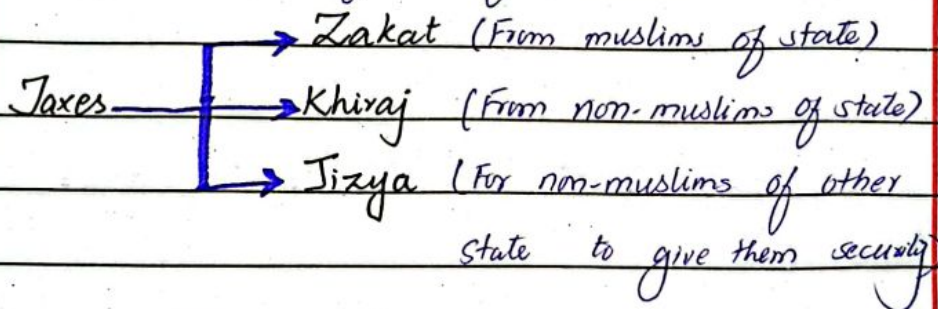 Zakat (From muslims of state)
Taxes Khiraj (From non-muslims of state)
Jizya (For non-muslims of other
state to give them security